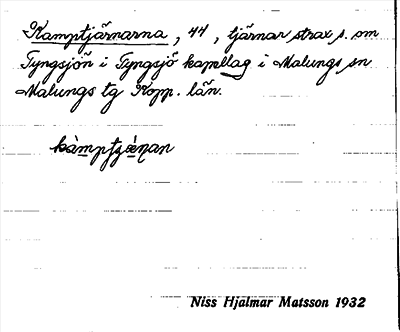 Kamptjärnarna, 44, tjärnar strax s. om
Tyngsjön i Tyngsjö kapellag i Malungs sn
Malungs tg Kopp. län.
Niss Hjalmar Matsson 1932